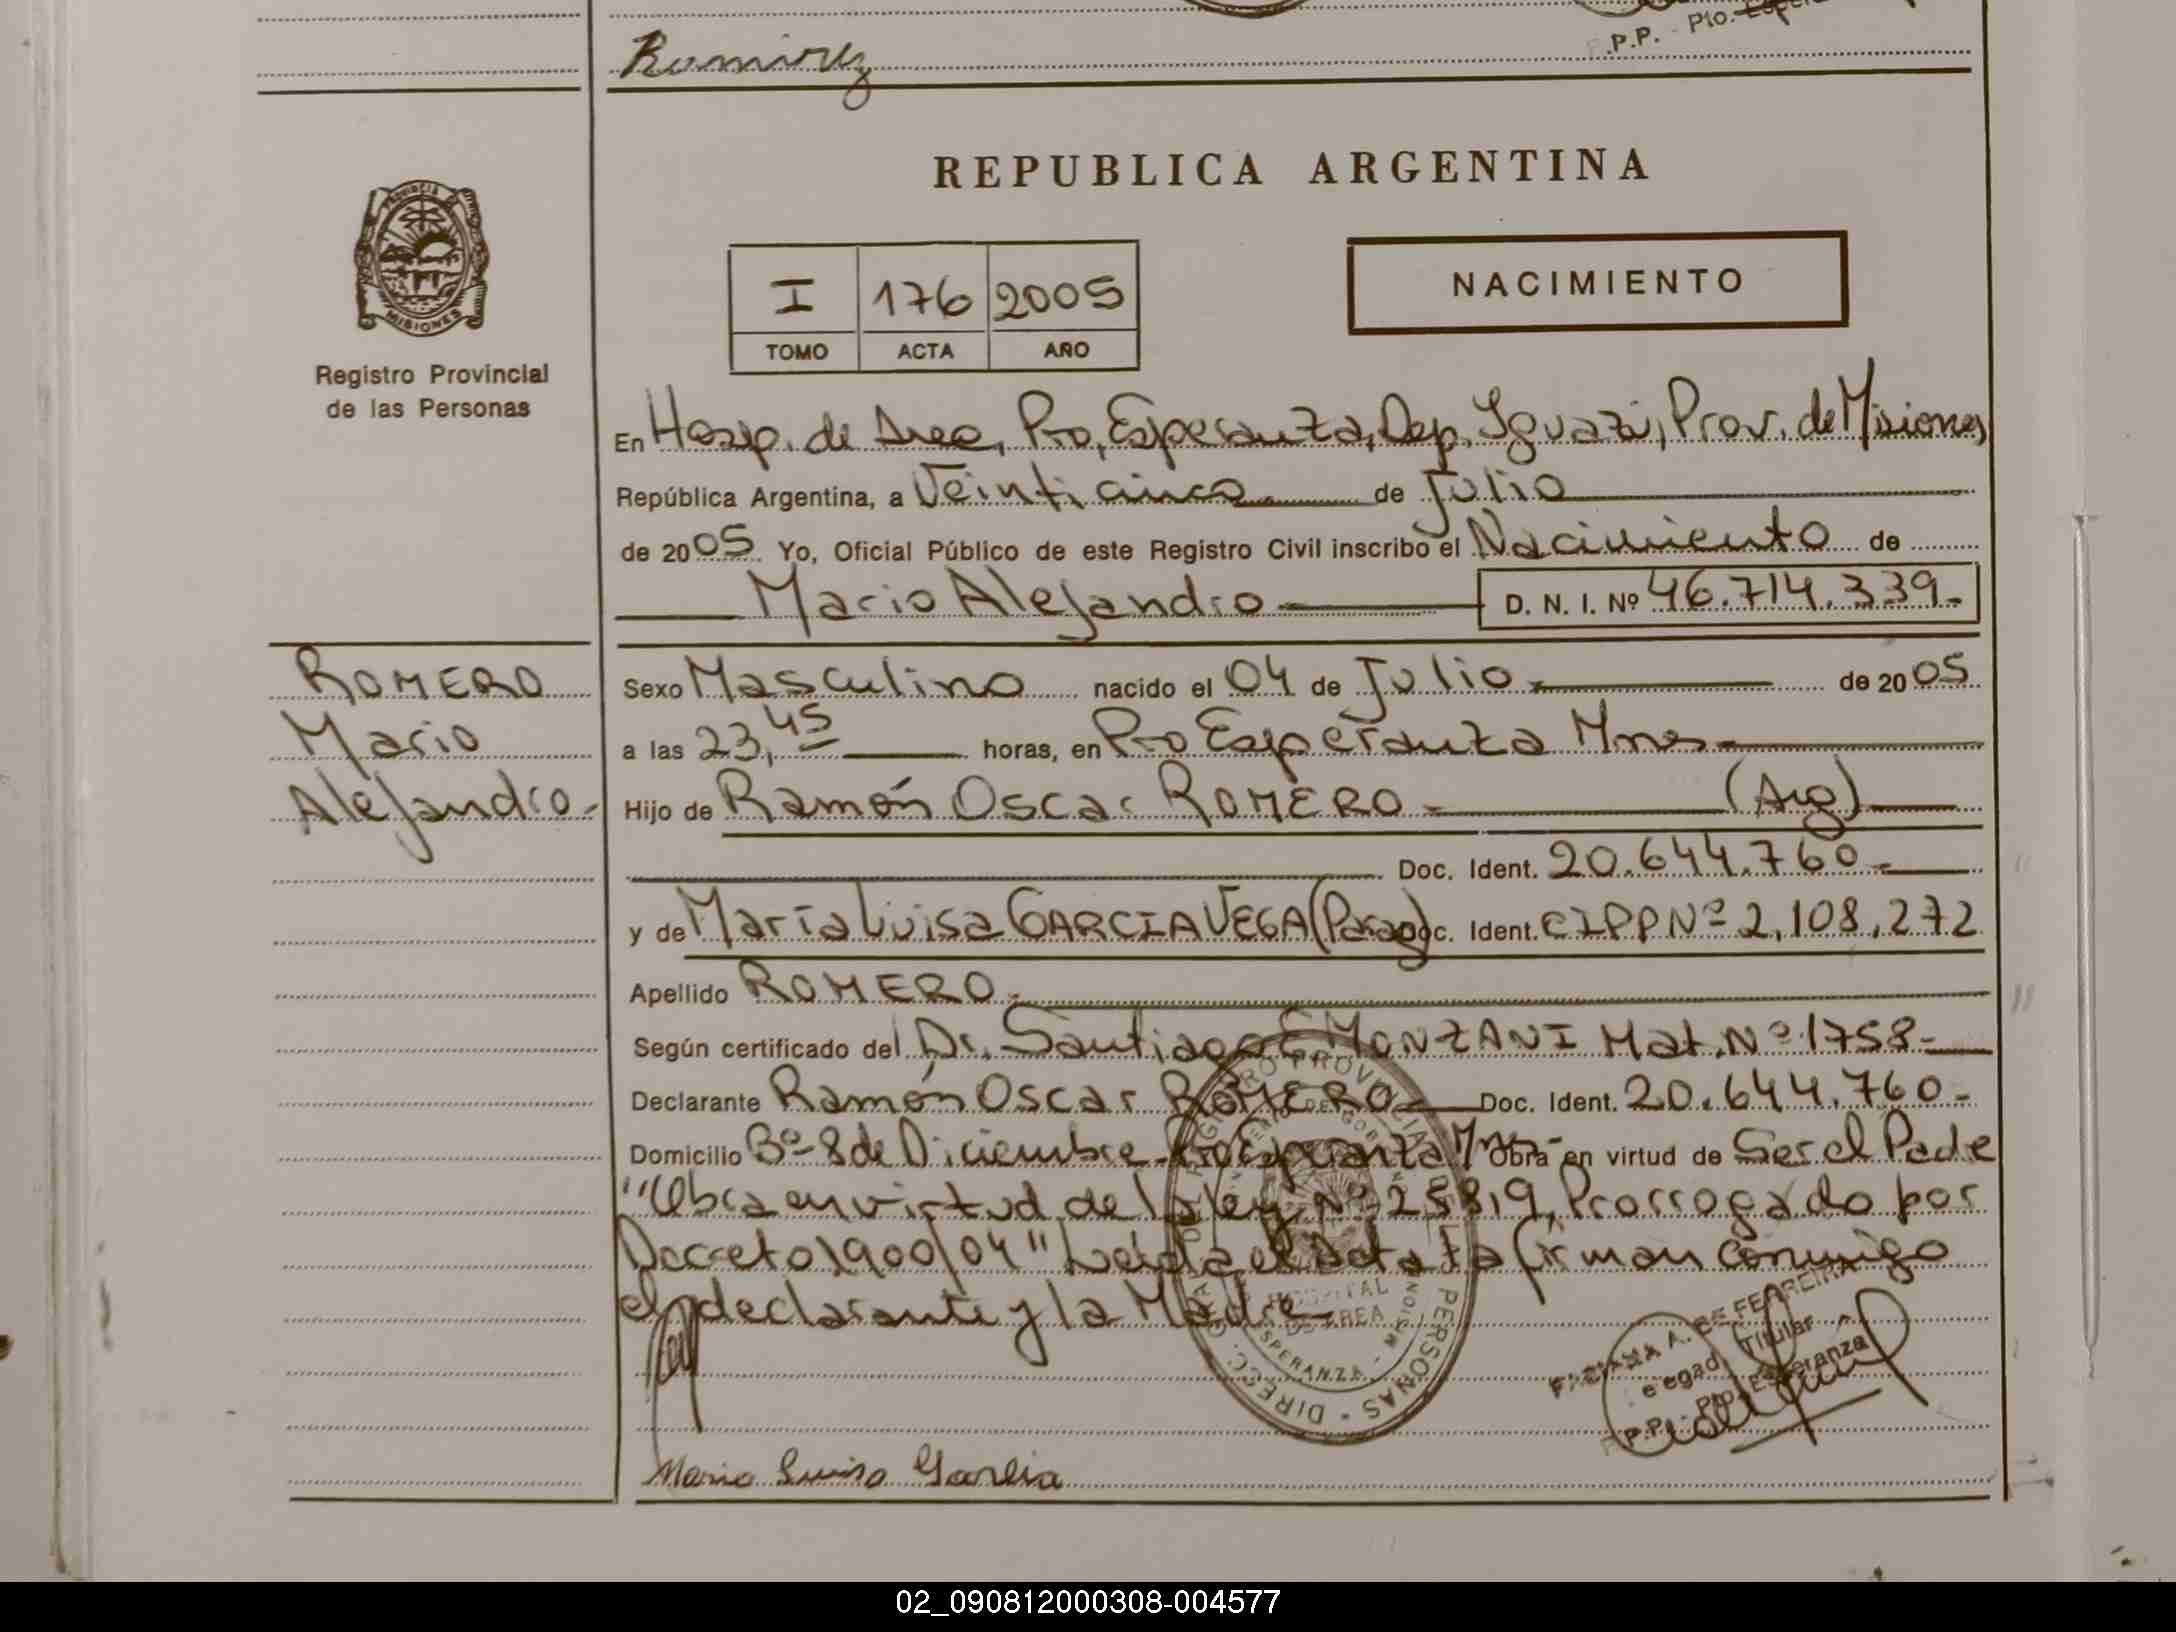 Ramirez
P.P. - Pto. Esper
REPUBLICA ARGENTINA
PROVINCIA DE
MISIONES
Registro Provincial
de las Personas
I 176 2005
TOMO ACTA AÑO
NACIMIENTO
En Hosp. de Area, Pto, Esperanza, Dep. Iguazú, Prov. de Misiones
República Argentina, a Veinticinco de Julio
de 2005 Yo, Oficial Público de este Registro Civil inscribo el Nacimiento de
Mario Alejandro D. N. I. Nº 46.714.339.-
ROMERO
Mario
Alejandro.-
Sexo Masculino nacido el 04 de Julio de 2005
a las 23,45 horas, en Pto Esperanza Mnes.-
Hijo de Ramón Oscar ROMERO.- (Arg)
Doc. Ident. 20.644.760.-
y de María Luisa GARCIA VEGA (Parag) Doc. Ident. CIPP Nº 2,108,272
Apellido ROMERO.-
Según certificado del Dr. Santiago E MONZANI Mat. Nº 1758-
Declarante Ramón Oscar ROMERO Doc. Ident. 20.644.760.-
Domicilio Bº 8 de Diciembre - Pto Esperanza Mnes.- Obra en virtud de Ser el Padre
"Obra en virtud de la ley Nº 25819, Prorrogado por
Decreto 1900/04" Leída el Acta la firman conmigo
el declarante y la Madre.-
REGISTRO PROVINCIAL DE LAS PERSONAS - DIRECC.
HOSPITAL
DE AREA
ESPERANZA - MISIONES
A. DE FERREIRA
Titular
P.P. - Pto. Esperanza
Maria Luisa Garcia
02_090812000308-004577